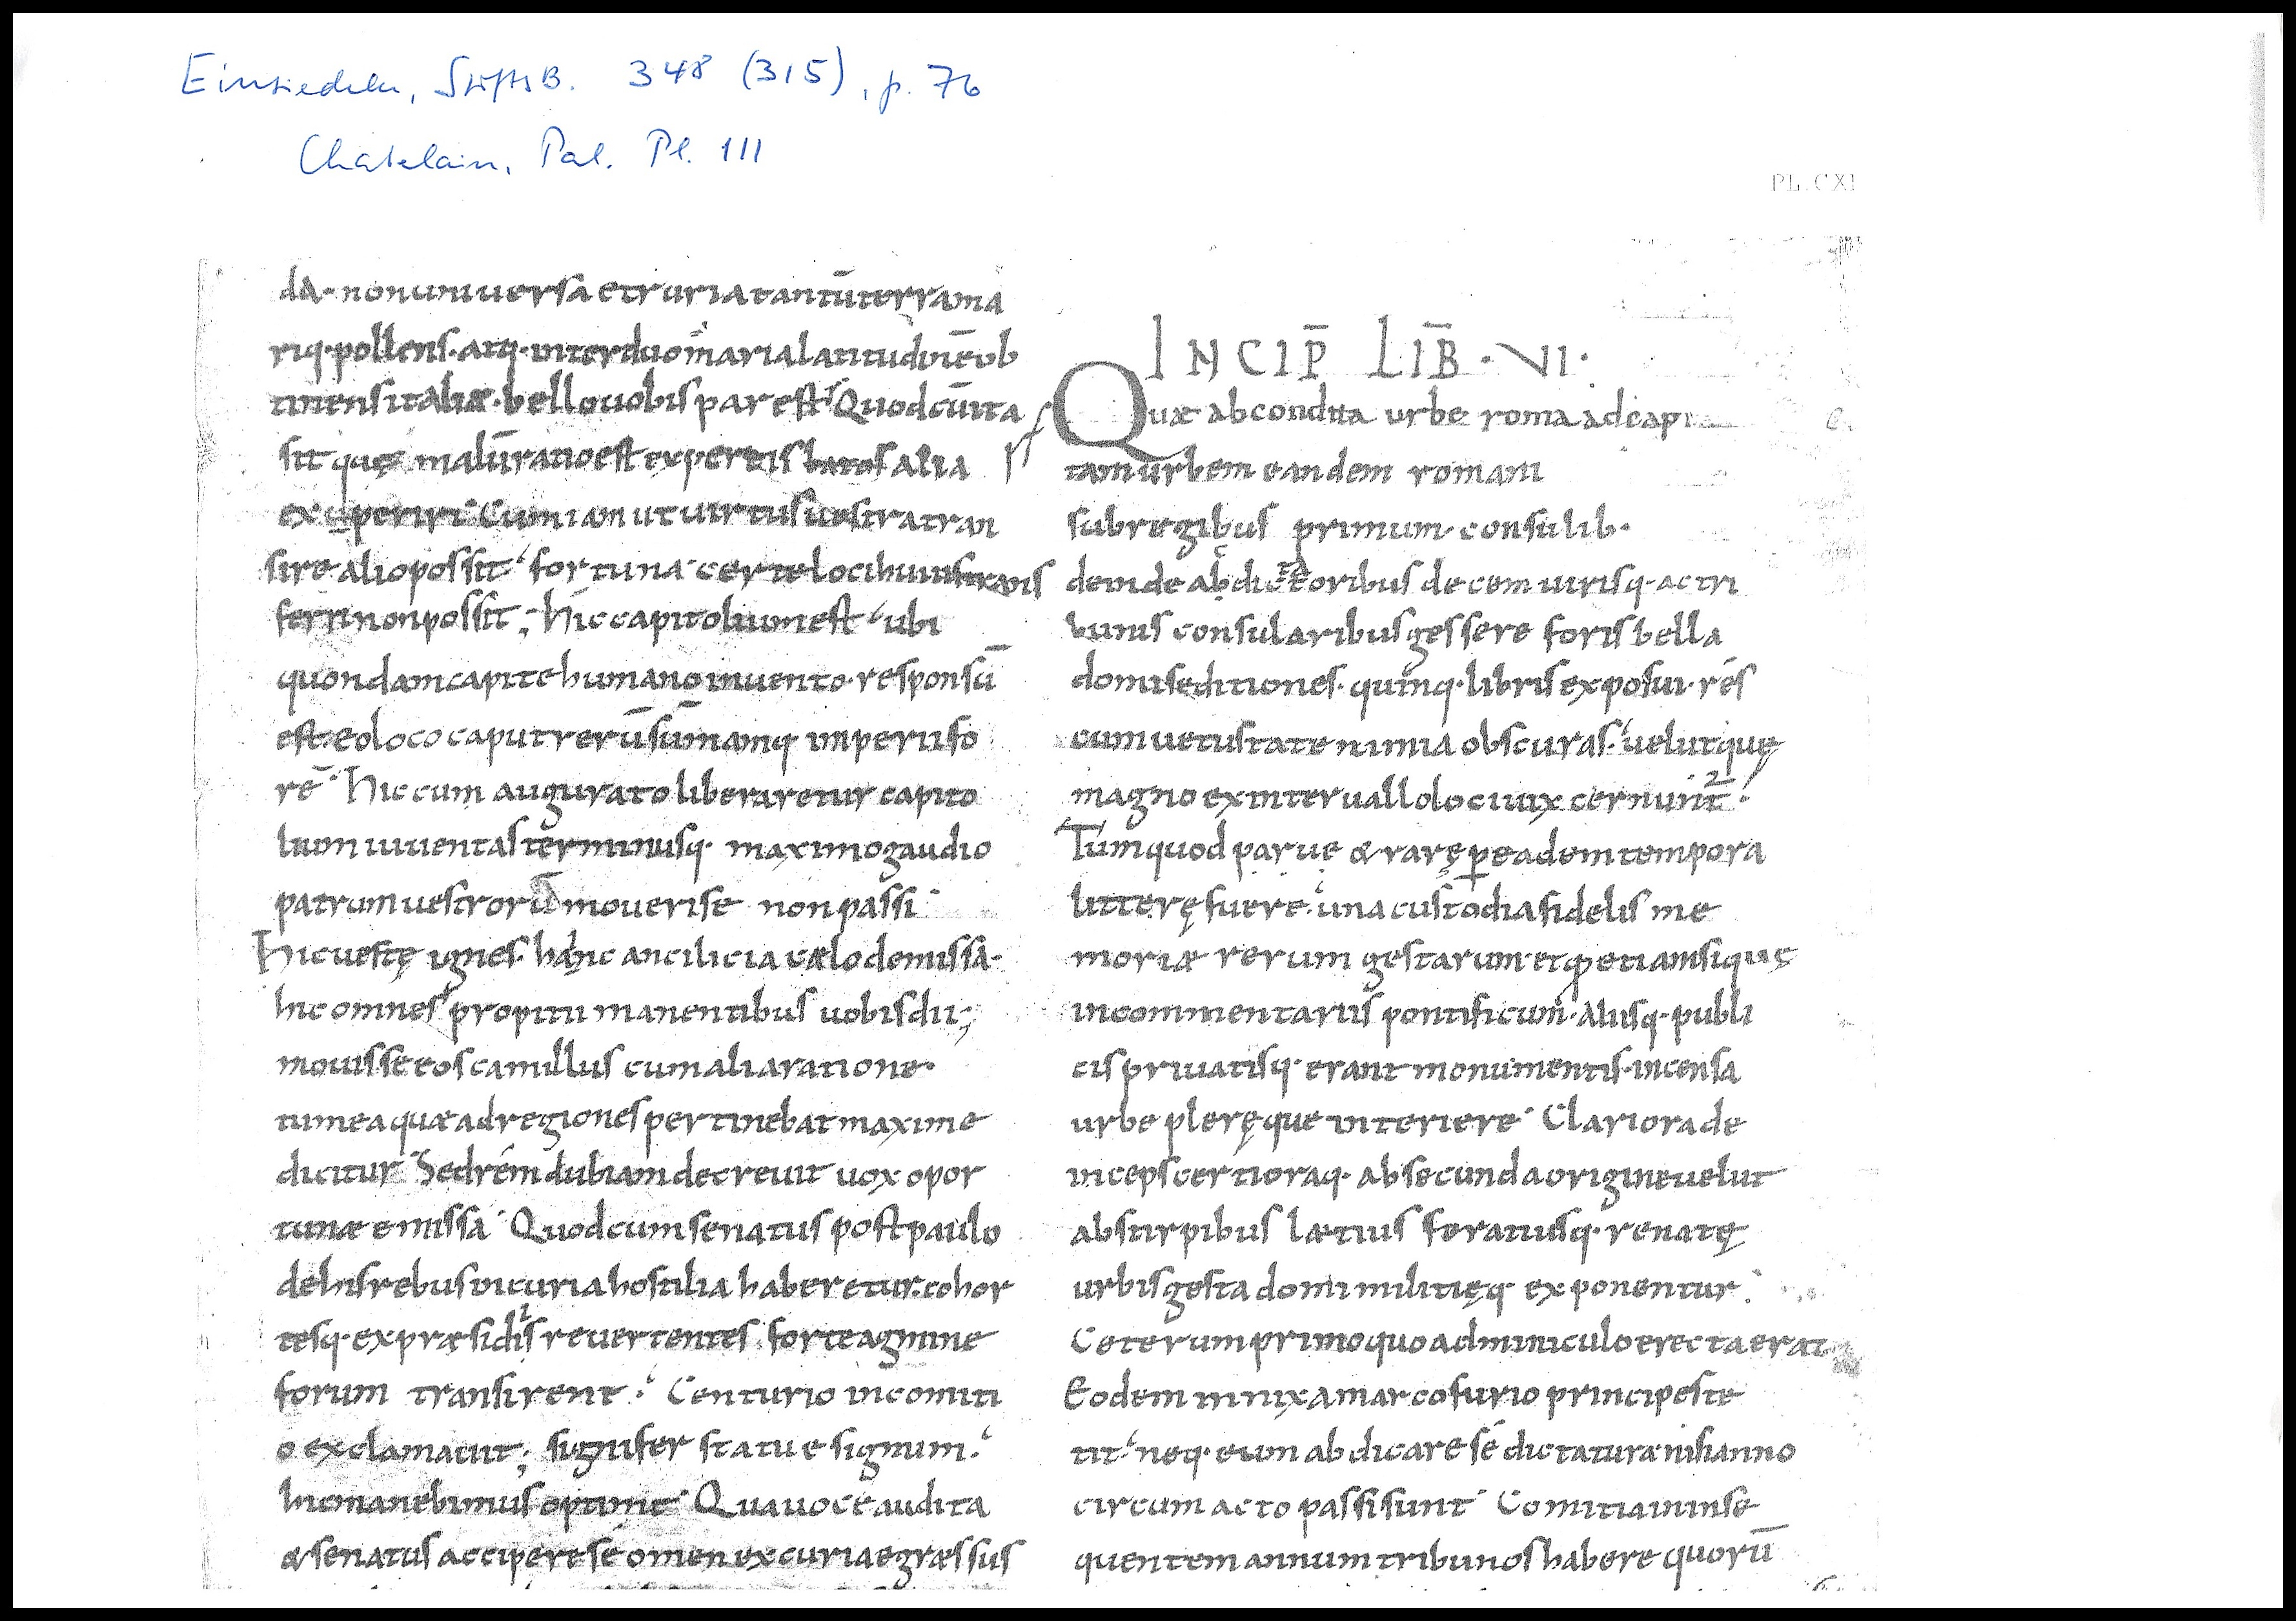 Einsiedeln, StiftsB. 348 (315), p. 76
Chatelain, Pal. Pl. 111
PL. CXI
da· non universa etruria tantū terra ma
riq· pollens· atq· inter duo maria latitudinē ob
tinens italiæ· bello vobis par est Quod cū ita
sit quę malū ratio est expertis alia
experiri Cum iam ut virtus vestra tran
sire alio possit fortuna certe loci huius trans
ferri non possit; hic capitolium est ubi
quondam capite humano invento responsū
est eo loco caput rerū sūmamq imperii fo
rē Hic cum augurato liberaretur capito
lium iuventas terminusq· maximo gaudio
patrum vestrorū moveri se non passi
Hic vestę ignes· hic ancilia cælo demissa·
hic omnes propitii manentibus vobis dii;
movisse eos camillus cum alia ratione·
tum ea quæ ad regiones pertinebat maxime
dicitur Sed rém dubiam decrevit vox opor
tunæ emissa Quod cum senatus post paulo
de his rebus in curia hostilia haberetur· cohor
tesq· ex præsidiis revertentes forte agmine
forum transirent· Centurio in comiti
o exclamavit; signifer statue signum·
hic manebimus optimæ Qua voce audita
& senatus accipere sé omen ex curia egræssus
INCIP̄ LIB̄· VI·
Quæ ab condita urbe roma ad cap
tam urbem eandem romam
sub regibus primum· consulib·
deinde ab dictatoribus decem virisq· ac tri
bunis consularibus gessere foris bella
domi seditiones· quinq· libris exposui· rés
cum vetustate nimia obscuras· velut quę
magno ex intervallo loci vix cernunt̄·
Tum quod parve & rarę p eadem tempora
litterę fuere· una custodia fidelis me
moriæ rerum gestarum· et qđ etiam si quę
in commentariis pontificum· aliisq· publi
cis privatisq· erant monumentis· incensa
urbe plerę que interiere Clariora de
inceps certioraq· ab secunda origine velut
ab stirpibus lætius feratiusq· renatę
urbis gesta domi militięq· exponentur·
Ceterum primo quo adminiculo erecta erat
Eodem innixa marco furio principe ste
tit· neq· eum abdicare sé dictatura nisi anno
circum acto passi sunt Comitia in inse
quentem annum tribunos habere quorū